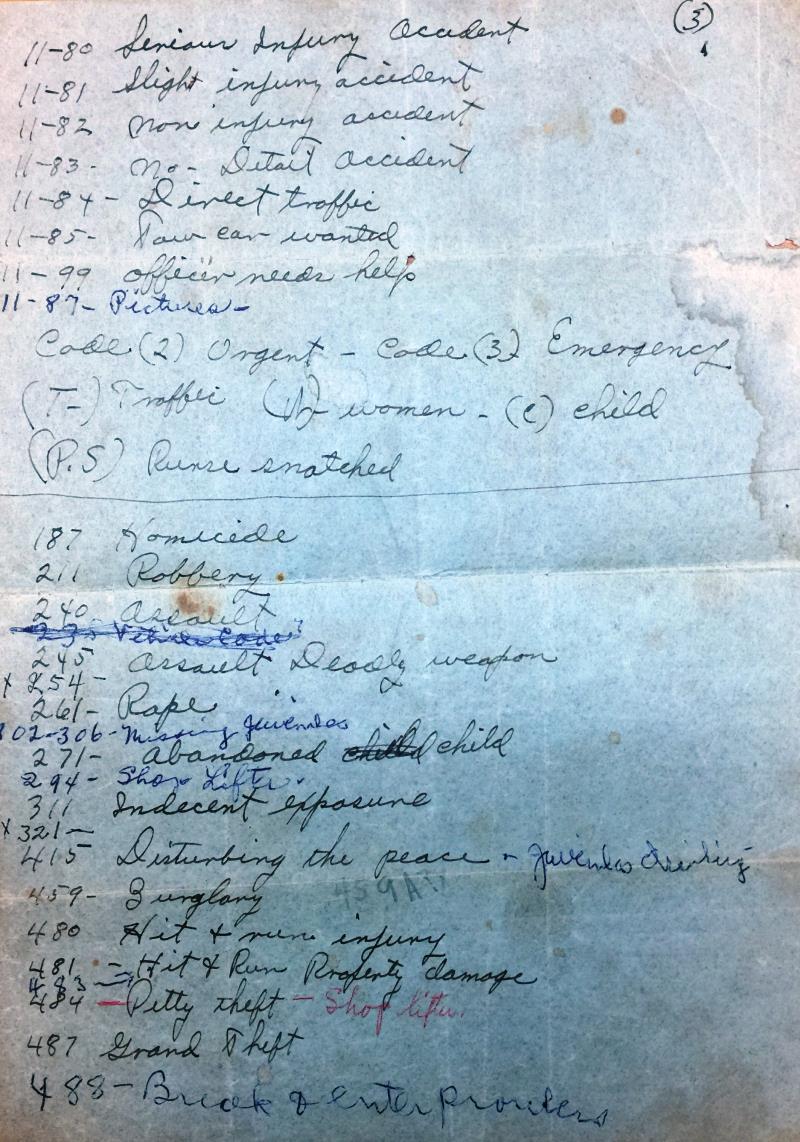 (3)
11-80 Serious Injury Accident
11-81 Slight injury accident
11-82 non injury accident
11-83- no- Detail accident
11-84- Direct traffic
11-85- Tow car wanted
11-99 officer needs help
11-87- Pictures-
Code (2) Urgent - Code (3) Emergency
(T-) Traffic (W) women - (C) child
(P.S) Purse snatched
187 Homicide
211 Robbery
240 Assault
23- Vehicle Code
245 Assault Deadly weapon
x 254-
261- Rape
02-306- Missing Juveniles
271- abandoned child child
294- Shop Lifter.
311 Indecent exposure
x 321-
415 Disturbing the peace - Juveniles drinking
459- Burglary 459A
480 Hit & run injury
481 - Hit & Run Property damage
483-
484 - Petty theft - Shop lifter
487 Grand Theft
488- Break & enter prowlers